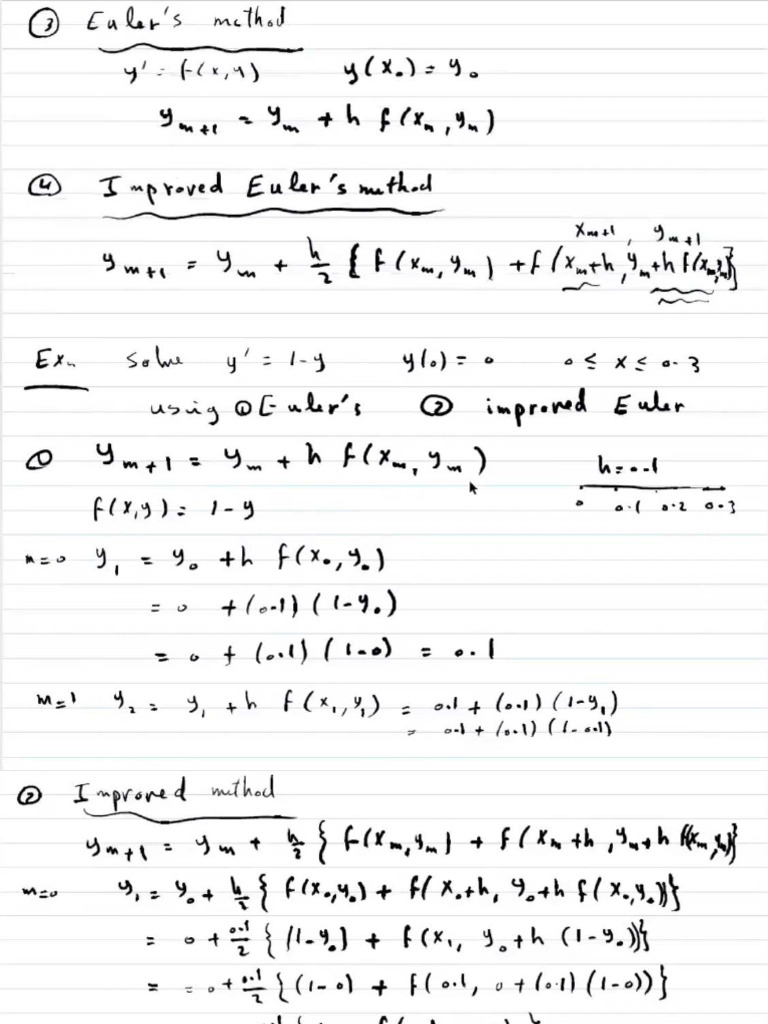 ③ Euler's method
y' = f(x,y)    y(x₀) = y₀
yₘ₊₁ = yₘ + h f(xₘ, yₘ)
④ Improved Euler's method
xₘ₊₁, yₘ₊₁
yₘ₊₁ = yₘ + h/2 { f(xₘ, yₘ) + f(xₘ+h, yₘ+h f(xₘ,yₘ)}
Ex. Solve y' = 1-y    y(0) = 0    0 ≤ x ≤ 0.3
using ① Euler's    ② improved Euler
① yₘ₊₁ = yₘ + h f(xₘ, yₘ)    h=0.1
f(x,y) = 1-y    0 0.1 0.2 0.3
m=0 y₁ = y₀ + h f(x₀, y₀)
= 0 + (0.1) (1-y₀)
= 0 + (0.1) (1-0) = 0.1
m=1 y₂ = y₁ + h f(x₁, y₁) = 0.1 + (0.1) (1-y₁)
= 0.1 + (0.1) (1-0.1)
② Improved method
yₘ₊₁ = yₘ + h/2 { f(xₘ,yₘ) + f(xₘ+h, yₘ+h f(xₘ,yₘ)}
m=0 y₁ = y₀ + h/2 { f(x₀,y₀) + f(x₀+h, y₀+h f(x₀,y₀))}
= 0 + 0.1/2 { (1-y₀) + f(x₁, y₀+h (1-y₀))}
= = 0 + 0.1/2 { (1-0) + f(0.1, 0+(0.1)(1-0))}